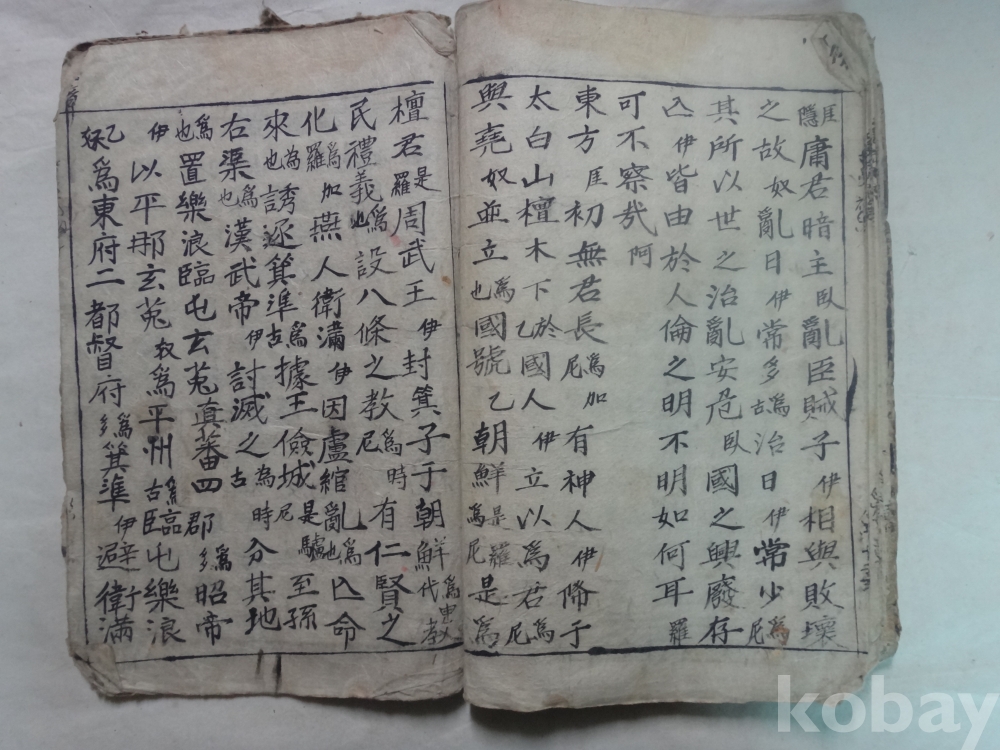 隱厓庸君暗主臥亂臣賊子伊相與敗壞
之故奴亂日伊常多為古治日伊常少為尼
其所以世之治亂安危臥國之興廢存
亾伊皆由於人倫之明不明如何耳羅
可不察哉阿
東方厓初無君長為尼加有神人伊降于
太白山檀木下於乙國人伊立以為君為尼
與堯奴並立為也國號乙朝鮮是羅為尼是為
檀君是羅周武王伊封箕子于朝鮮為
民禮義為也設八條之教為尼時有仁賢之
化為羅加燕人衛滿伊因盧綰亂為也亾命
來為也誘逐箕準為古據王儉城為尼是驢至孫
右渠為也漢武帝伊討滅之為古時分其地
為也置樂浪臨屯玄菟真蕃四郡為多昭帝
伊以平那玄菟奴為平州為古臨屯樂浪
乙奴為東府二都督府為多箕準伊避衛滿
kobay